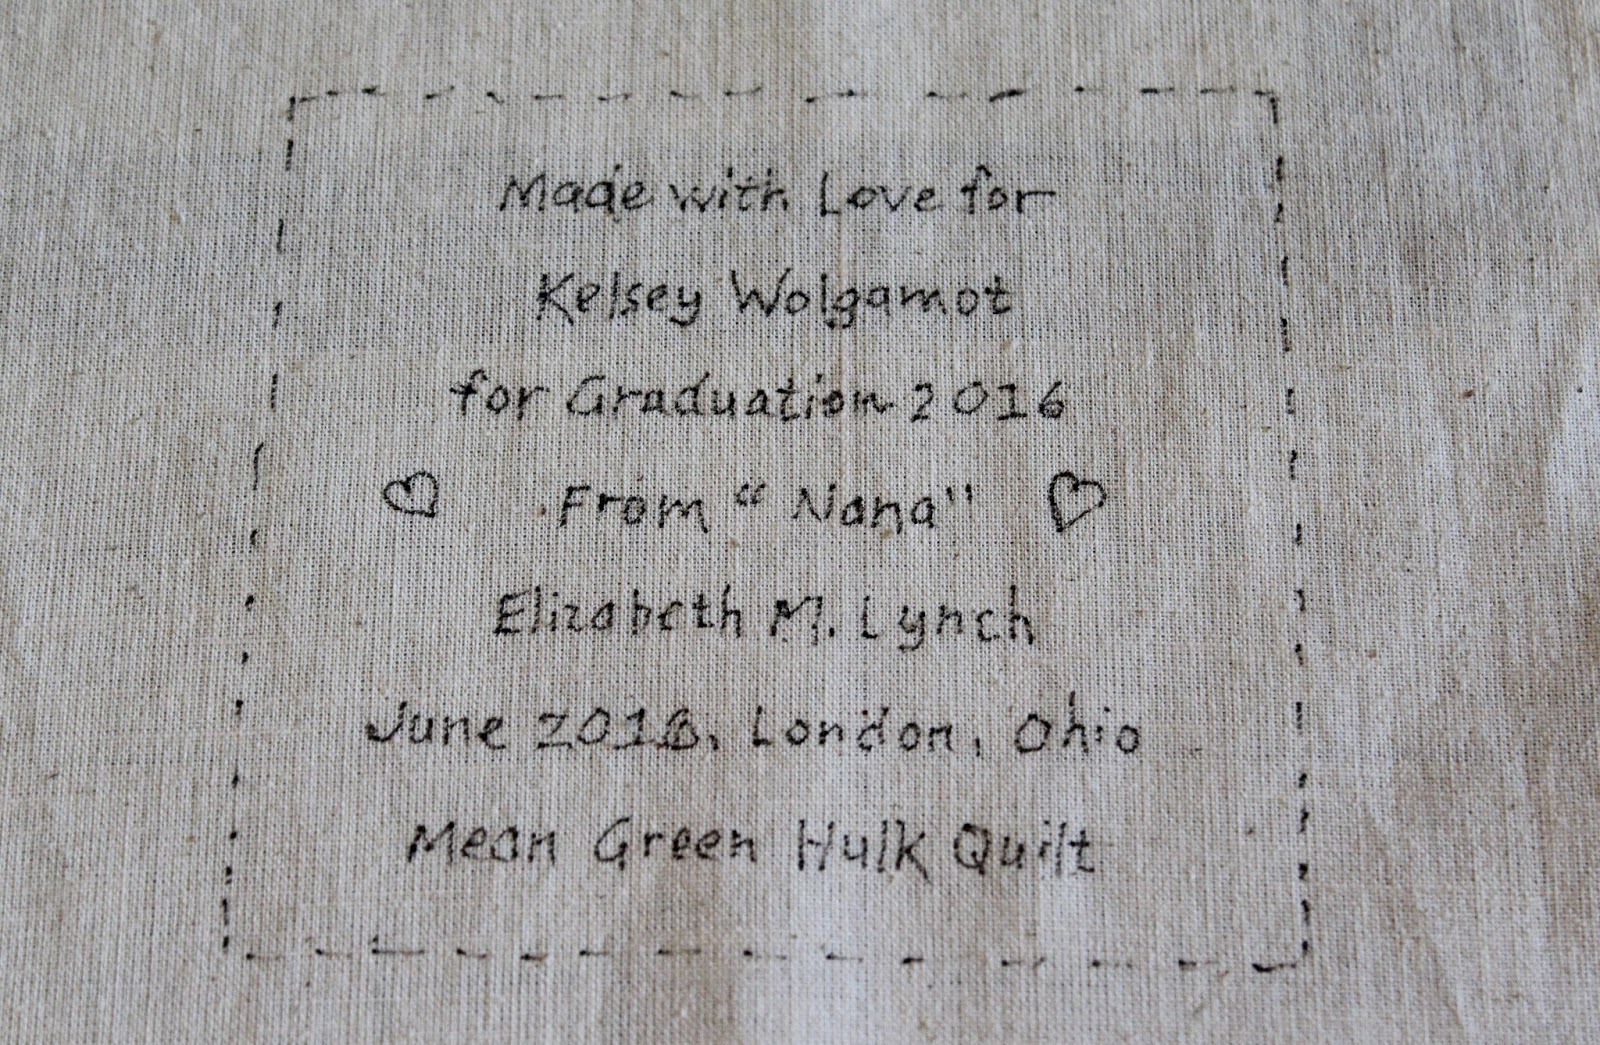 Made with Love for
Kelsey Wolgamot
for Graduation 2016
From “Nana"
Elizabeth M. Lynch
June 2018, London, Ohio
Mean Green Hulk Quilt